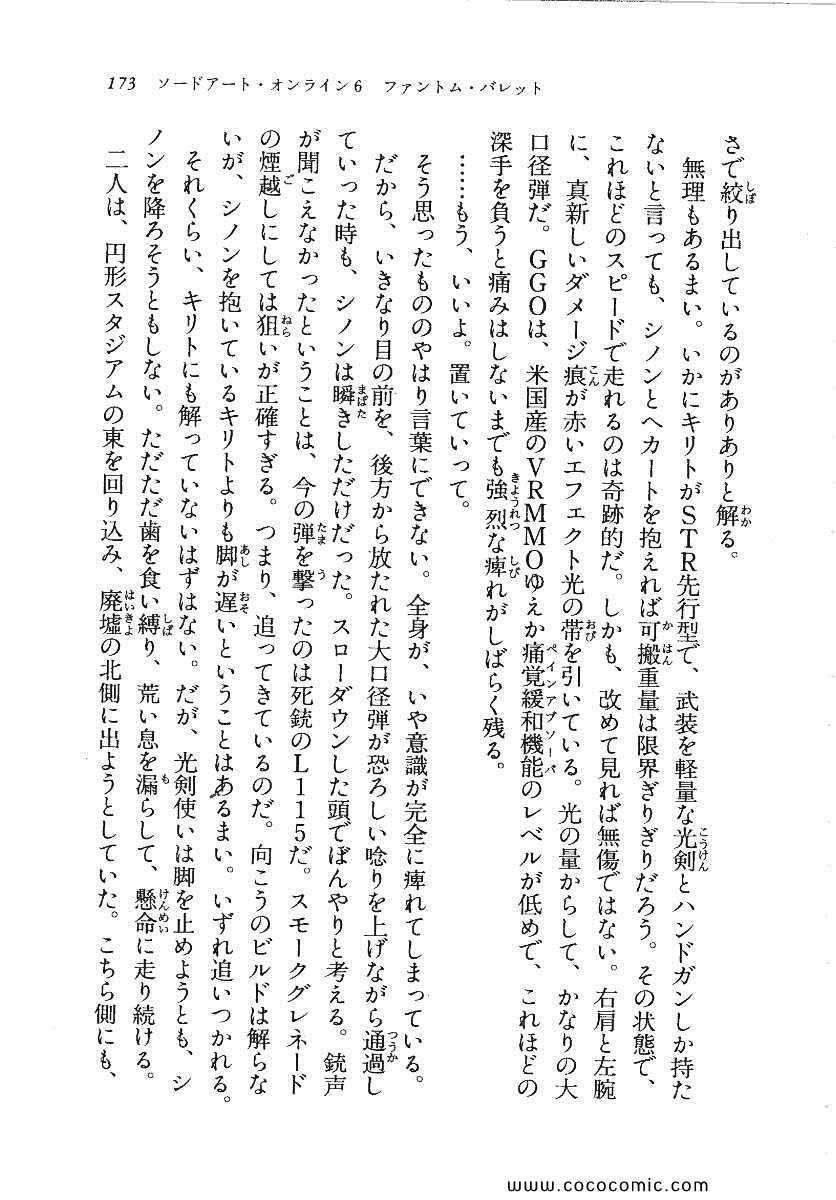 173　ソードアート・オンライン6　ファントム・バレット
さで絞り出しているのがありありと解る。
　無理もあるまい。いかにキリトがSTR先行型で、武装を軽量な光剣とハンドガンしか持た
ないと言っても、シノンとヘカートを抱えれば可搬重量は限界ぎりぎりだろう。その状態で、
これほどのスピードで走れるのは奇跡的だ。しかも、改めて見れば無傷ではない。右肩と左腕
に、真新しいダメージ痕が赤いエフェクト光の帯を引いている。光の量からして、かなりの大
口径弾だ。GGOは、米国産のVRMMOゆえか痛覚緩和機能のレベルが低めで、これほどの
深手を負うと痛みはしないまでも強烈な痺れがしばらく残る。
　……もう、いいよ。置いていって。
　そう思ったもののやはり言葉にできない。全身が、いや意識が完全に痺れてしまっている。
　だから、いきなり目の前を、後方から放たれた大口径弾が恐ろしい唸りを上げながら通過し
ていった時も、シノンは瞬きしただけだった。スローダウンした頭でぼんやりと考える。銃声
が聞こえなかったということは、今の弾を撃ったのは死銃のL115だ。スモークグレネード
の煙越しにしては狙いが正確すぎる。つまり、追ってきているのだ。向こうのビルドは解らな
いが、シノンを抱いているキリトよりも脚が遅いということはあるまい。いずれ追いつかれる。
　それくらい、キリトにも解っていないはずはない。だが、光剣使いは脚を止めようとも、シ
ノンを降ろそうともしない。ただただ歯を食い縛り、荒い息を漏らして、懸命に走り続ける。
　二人は、円形スタジアムの東を回り込み、廃墟の北側に出ようとしていた。こちら側にも、
www.cococomic.com